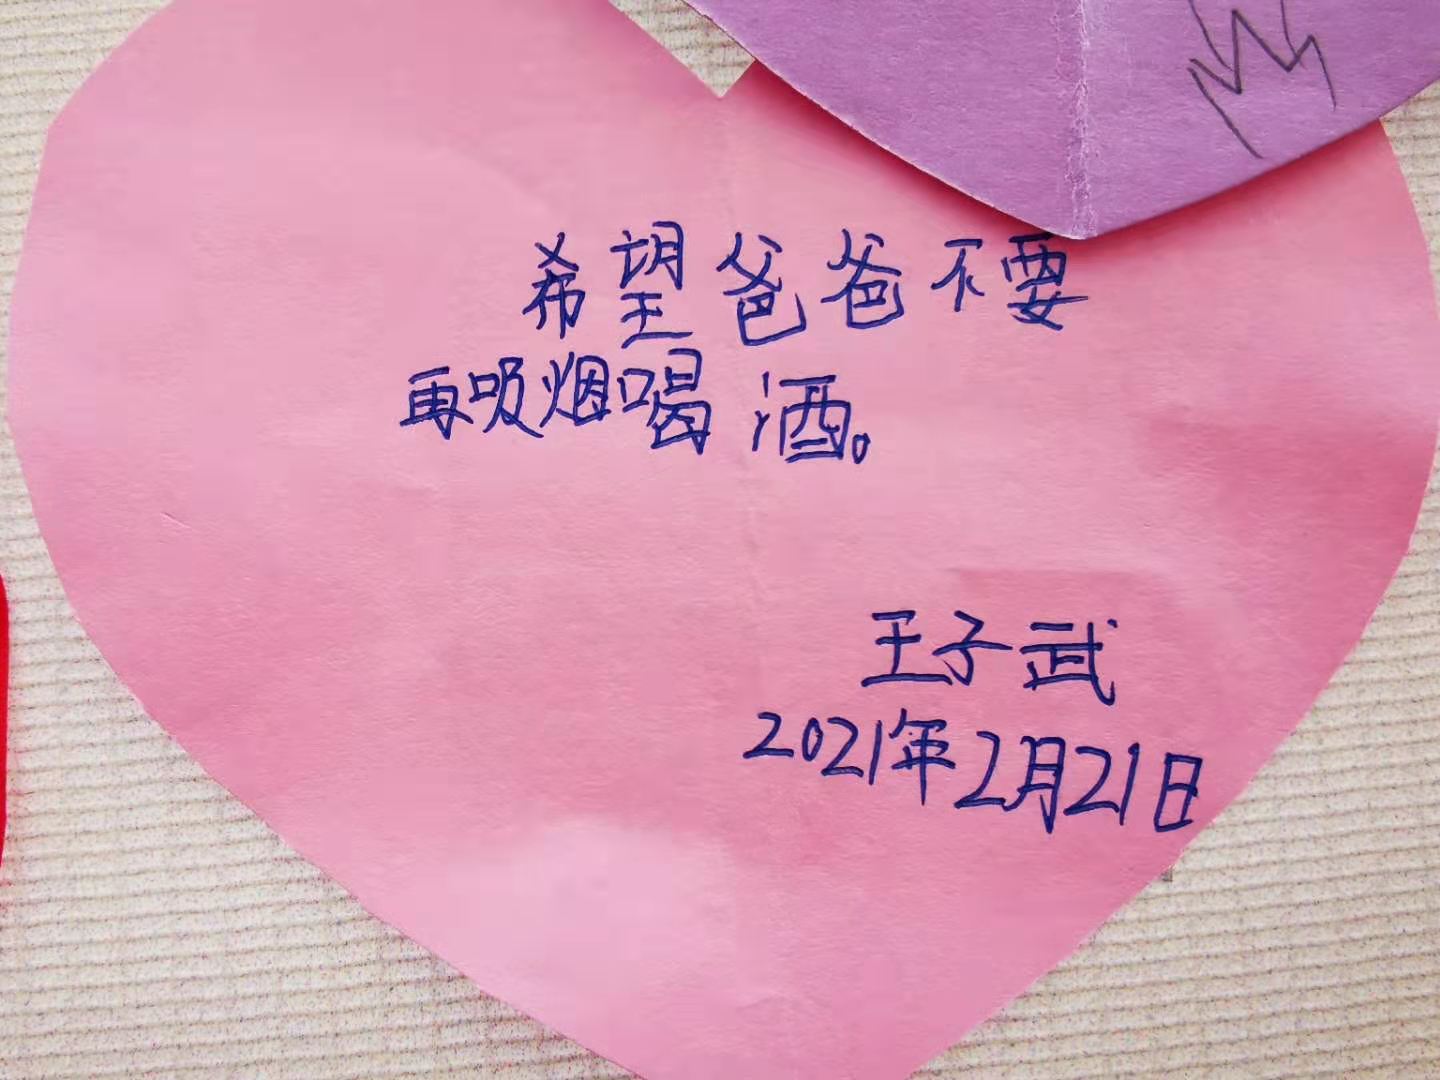 希望爸爸不要
再吸烟喝酒。
王子武
2021年2月21日